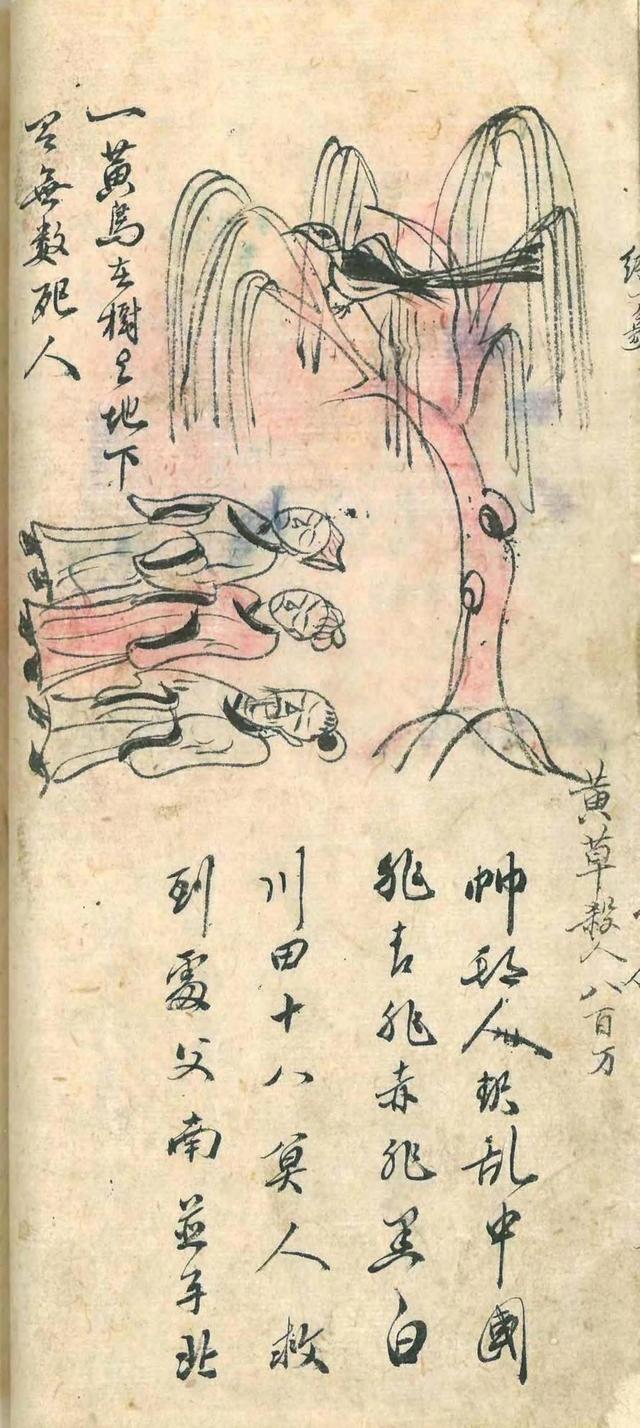 黃草殺人八百万
帥人乱中國
非青非赤非黑白
川田十八莫人救
到處父南並子北
一黃鳥在樹上地下
無数死人